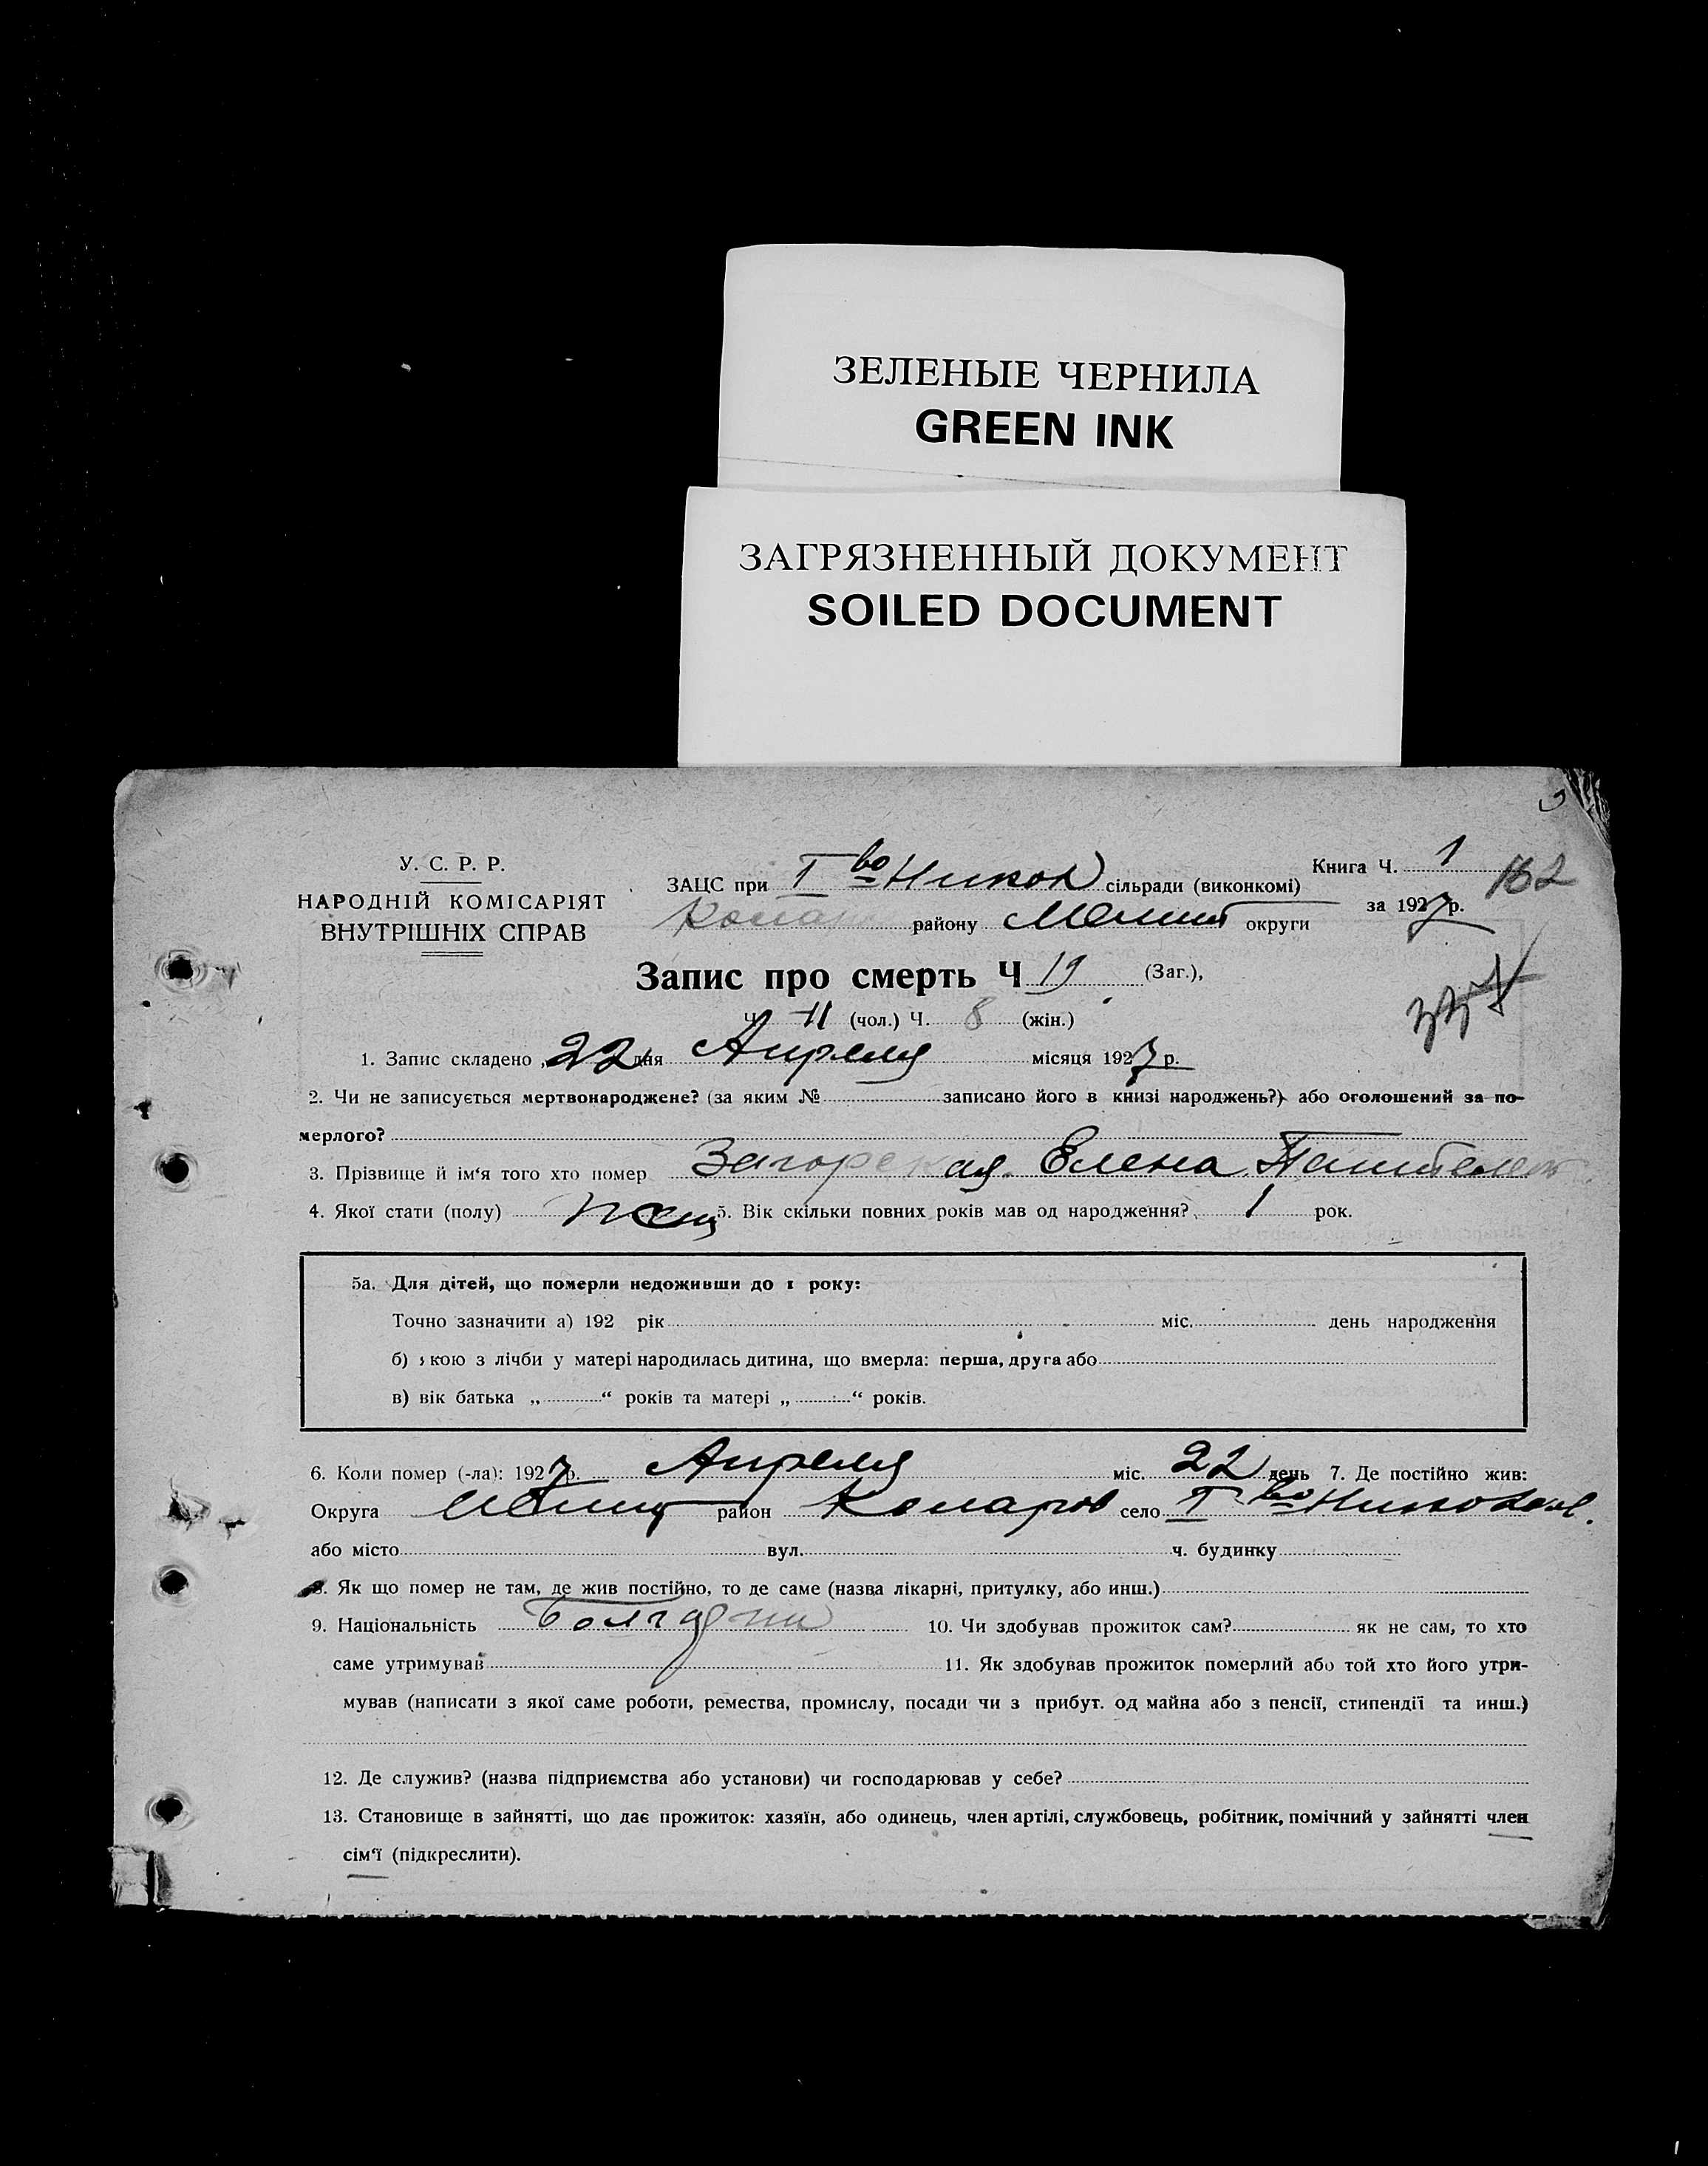 ЗЕЛЕНЫЕ ЧЕРНИЛА
GREEN INK
ЗАГРЯЗНЕННЫЙ ДОКУМЕНТ
SOILED DOCUMENT
У. С. Р. Р.
НАРОДНІЙ КОМІСАРІЯТ
ВНУТРІШНІХ СПРАВ
ЗАЦС при Т во Никол сільради (виконкомі)
району Мелит округи
Книга Ч. 1
162
за 1927 р.
Запис про смерть Ч 19 (Заг.),
Ч 11 (чол.) Ч. 8 (жін.)
1. Запис складено „22 дня Апреля місяця 1927 р.
2. Чи не записується мертвонароджене? (за яким № записано його в книзі народжень?) або оголошений за по-
мерлого?
3. Прізвище й ім‘я того хто помер Загорская Елена
4. Якої стати (полу) жен 5. Вік скільки повних років мав од народження? 1 рок.
5а. Для дітей, що померли недоживши до 1 року:
Точно зазначити а) 192 рік міс. день народження
б) якою з лічби у матері народилась дитина, що вмерла: перша, друга або
в) вік батька „ “ років та матері „ “ років.
6. Коли помер (-ла): 1927 р. Апреля міс. 22 день 7. Де постійно жив:
Округа Мелит район Комаров село Т во
або місто вул. ч. будинку
8. Як що помер не там, де жив постійно, то де саме (назва лікарні, притулку, або инш.)
9. Національність 10. Чи здобував прожиток сам? як не сам, то хто
саме утримував 11. Як здобував прожиток померлий або той хто його утри-
мував (написати з якої саме роботи, ремества, промислу, посади чи з прибут. од майна або з пенсії, стипендії та инш.)
12. Де служив? (назва підприємства або установи) чи господарював у себе?
13. Становище в зайнятті, що дає прожиток: хазяїн, або одинець, член артілі, службовець, робітник, помічний у зайнятті член
сім‘ї (підкреслити).